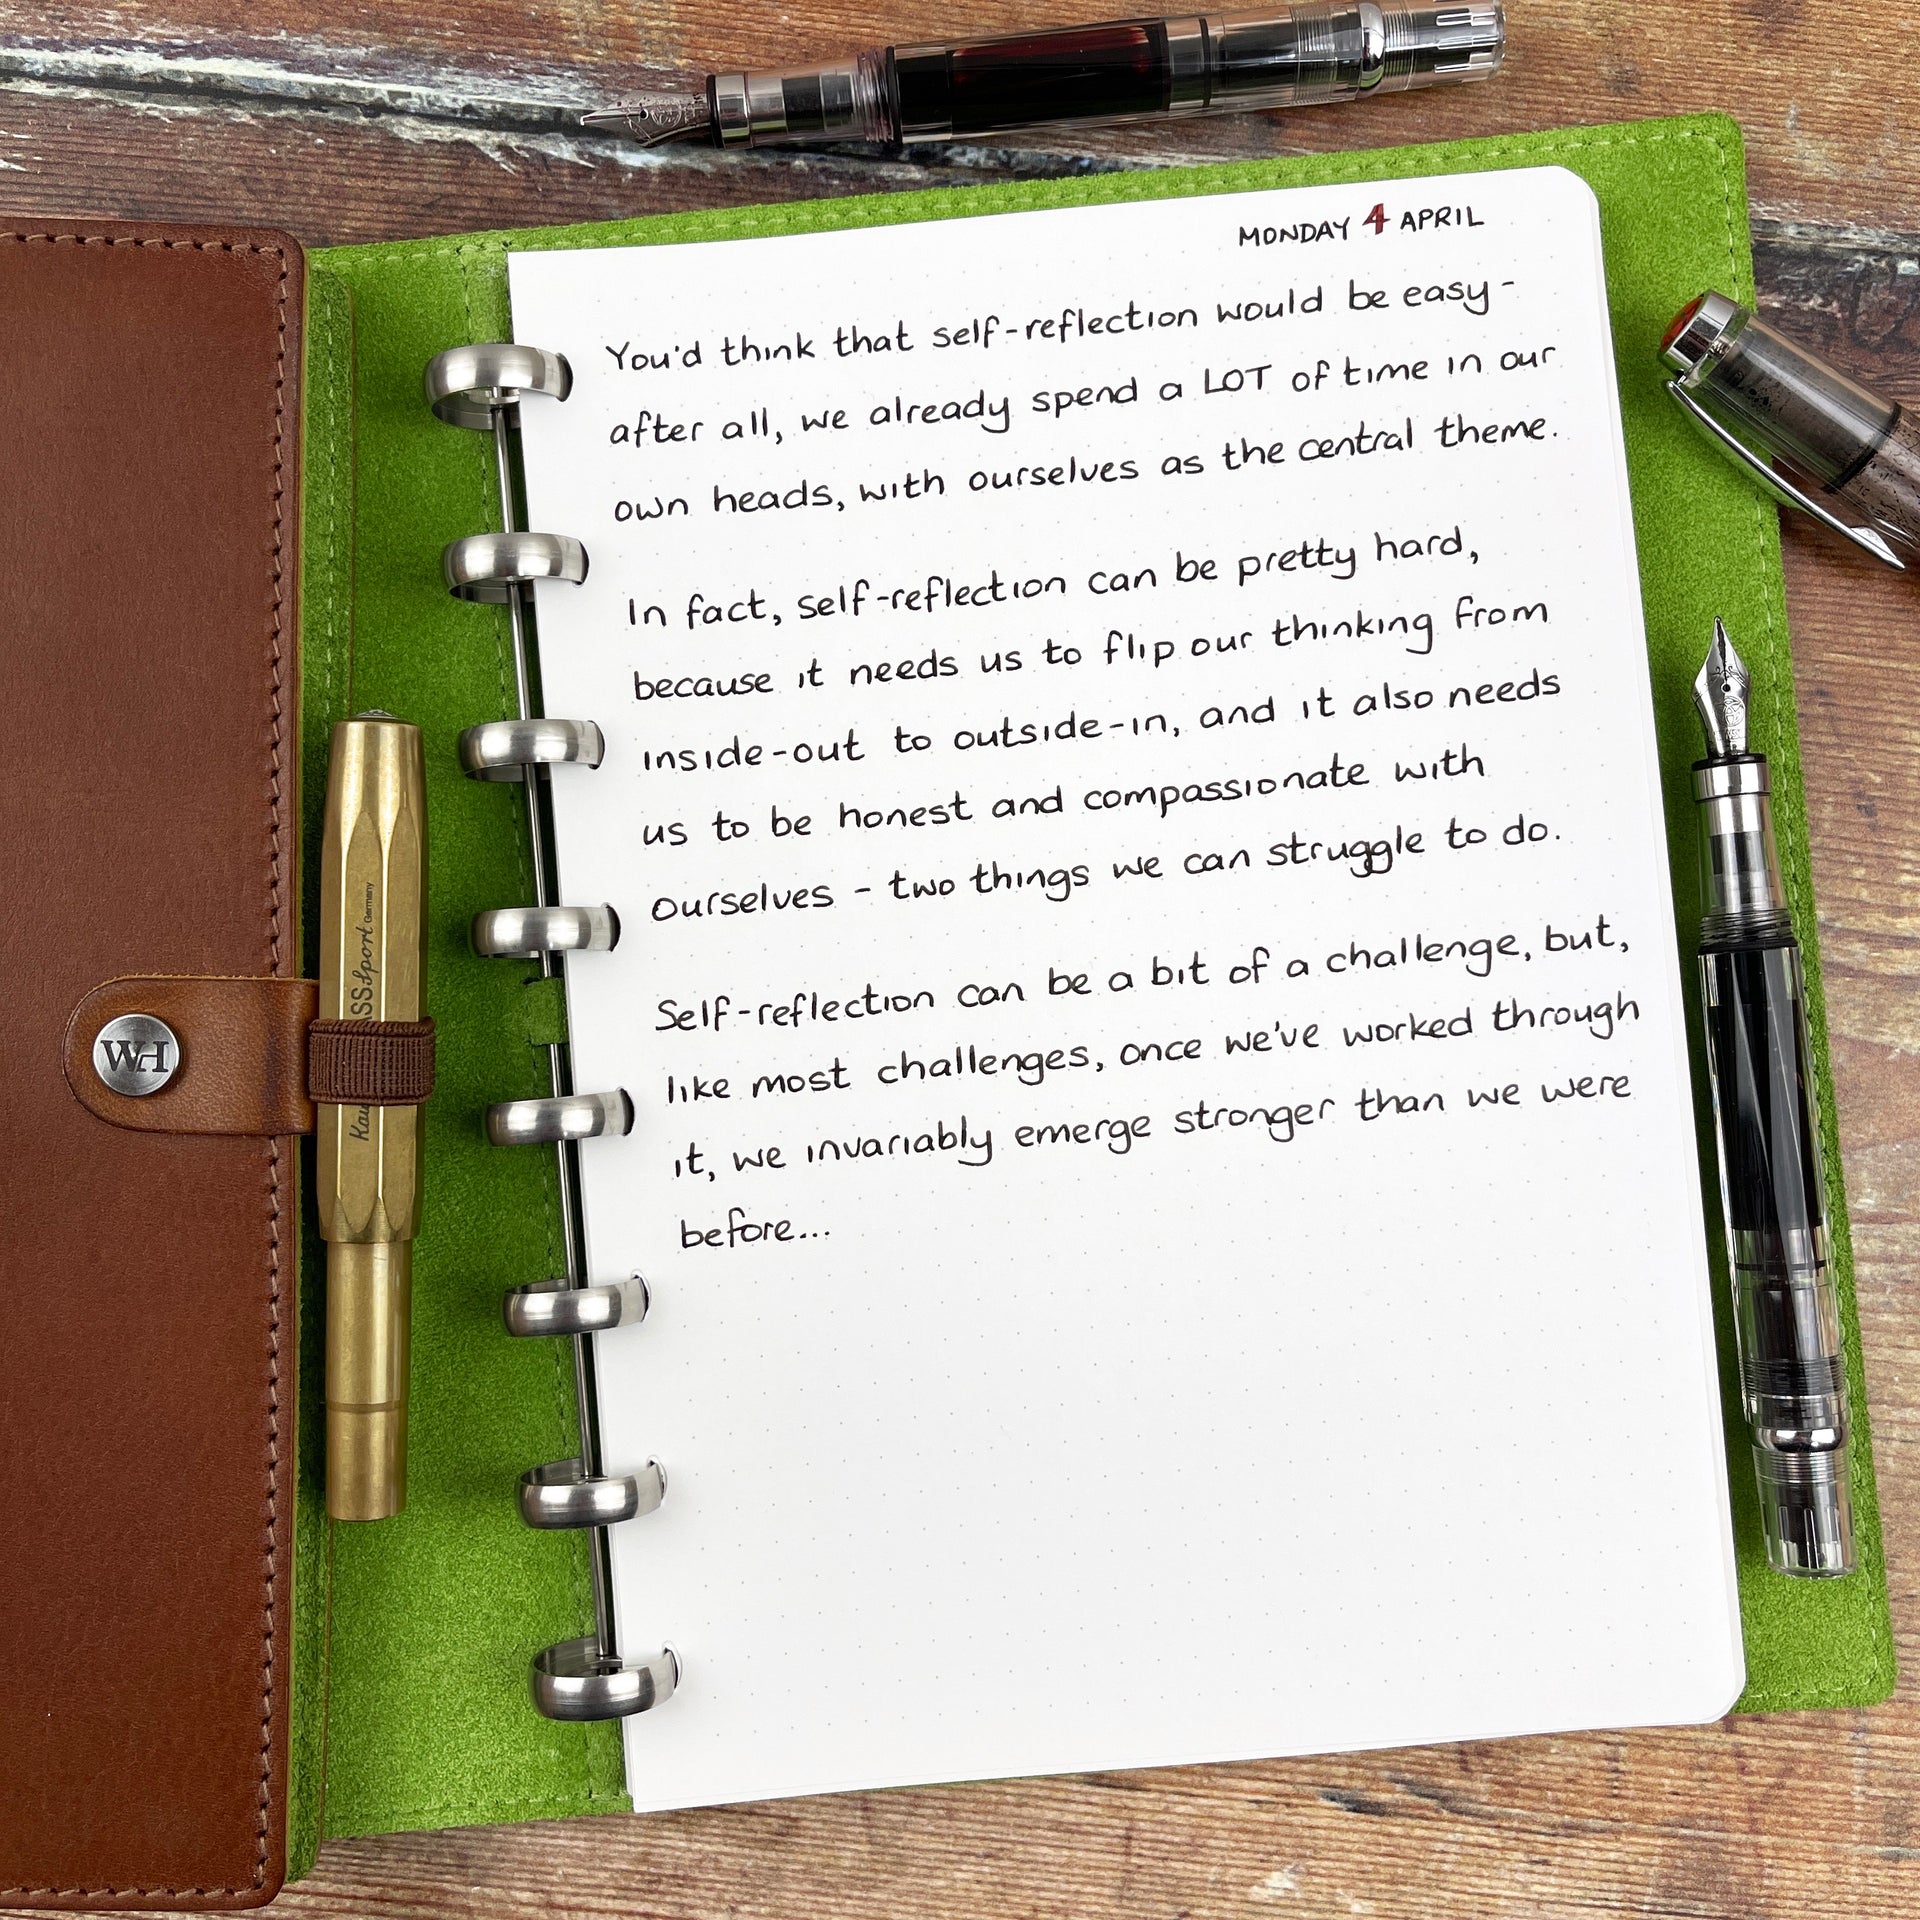 MONDAY 4 APRIL
You'd think that self-reflection would be easy -
after all, we already spend a LOT of time in our
own heads, with ourselves as the central theme.
In fact, self-reflection can be pretty hard,
because it needs us to flip our thinking from
inside-out to outside-in, and it also needs
us to be honest and compassionate with
ourselves - two things we can struggle to do.
Self-reflection can be a bit of a challenge, but,
like most challenges, once we've worked through
it, we invariably emerge stronger than we were
before...
WH
Sport Germany